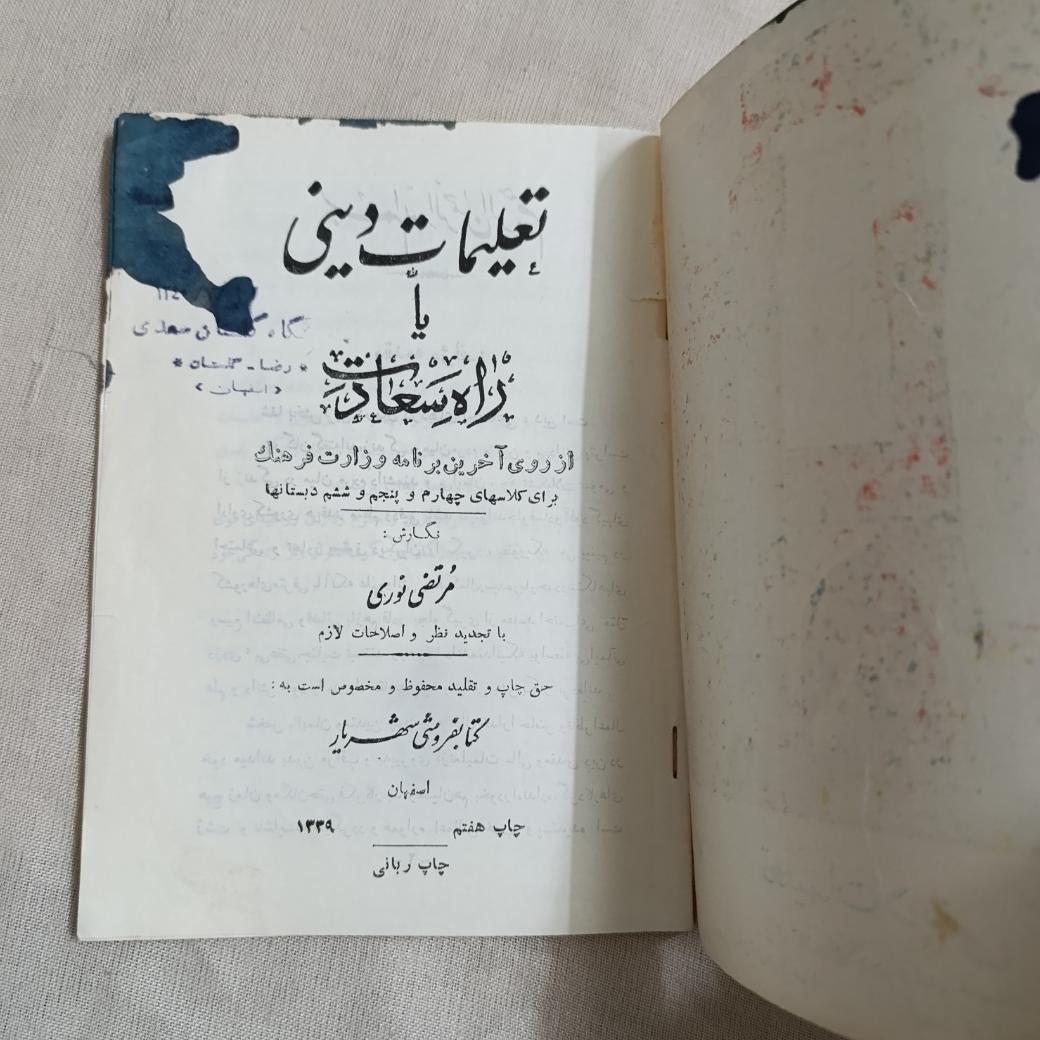 تعلیمات دینی
یا
راه سعادت
از روی آخرین برنامه وزارت فرهنك
برای کلاسهای چهارم و پنجم و ششم دبستانها
نگارش :
مرتضی نوری
با تجدید نظر و اصلاحات لازم
حق چاپ و تقلید محفوظ و مخصوص است به :
کتابفروشی شهریار
اصفهان
چاپ هفتم ۱۳۳۹
چاپ ربانی
سعدی
* رضا - گلستان *